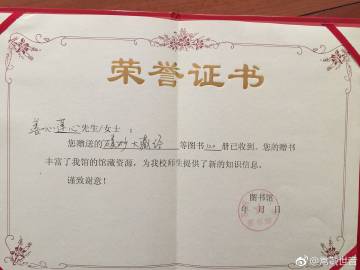 荣誉证书
善心莲心先生/女士：
您赠送的 碛砂大藏经 等图书 120 册已收到，您的赠书
丰富了我馆的馆藏资源，为我校师生提供了新的知识信息。
谨致谢意！
图书馆
年 月 日